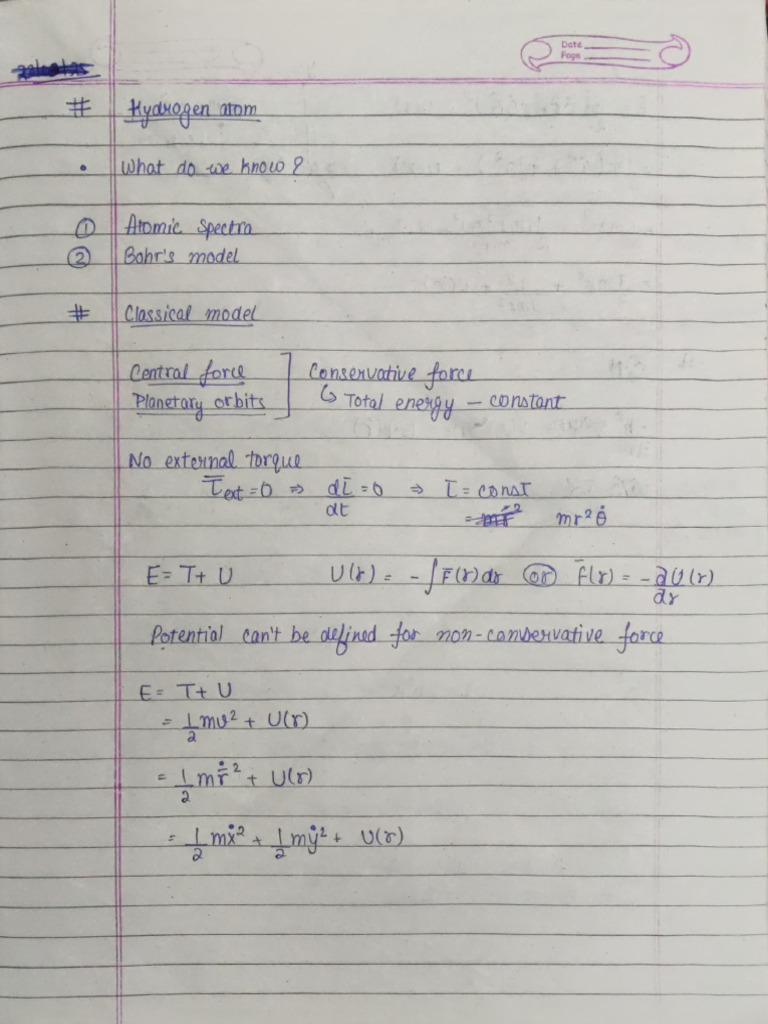 Date
Page
# Hydrogen atom
• What do we know?
① Atomic spectra
② Bohr's model
# Classical model
Central force ] Conservative force
Planetary orbits ] ↳ Total energy – constant
No external torque
τ̅ext = 0 ⇒ dL̅/dt = 0 ⇒ L̅ = const
= mr²θ̇
E = T + U U(r) = -∫F̅(r)dr or F̅(r) = -∂U(r)/∂r
Potential can't be defined for non-conservative force
E = T + U
= 1/2 mv² + U(r)
= 1/2 mṙ̅² + U(r)
= 1/2 mẋ² + 1/2 mẏ² + U(r)